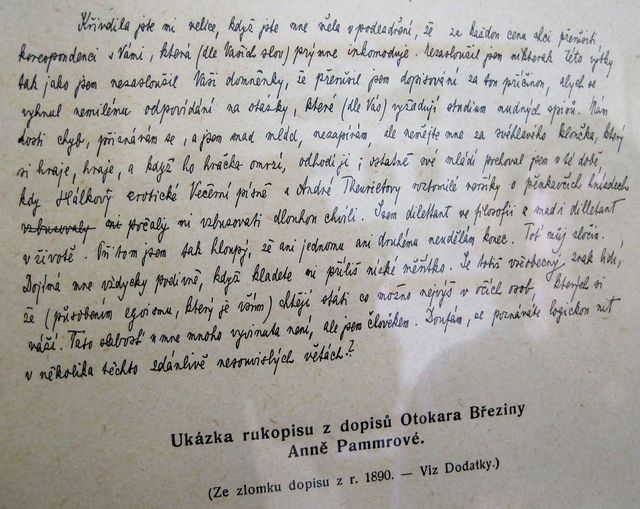 Křivdila jste mi velice, když jste mne měla v podezření, že za každou cenu chci přerušiti
korespondenci s Vámi, která (dle Vašich slov) prý mne inkomoduje. Nezasloužil jsem nikterak této výtky
tak jako jsem nezasloužil Vaši domněnky, že přerušil jsem dopisování za tou příčinou, abych se
vyhnul nemilému odpovídání na otázky, které (dle Vás) vyžadují studium nudných spisů. Mám
dosti chyb, přiznávám se, a jsem snad mlád, nezapírám, ale nemějte mne za svéhlavého kloučka, který
si hraje, hraje, a když ho hračka omrzí, odhodí ji; ostatně své mládí prchoval jsem v té době,
kdy Hálkovy erotické Večerní písně a André Theurietovy roztomilé veršíky o pěnkavčích hnízdech
vzbuzovaly mi počaly mi vzbuzovati dlouhou chvíli. Jsem dilettant ve filosofii a snad i dilletant
v životě. Při tom jsem tak hloupý, že ani jednomu ani druhému neudělám konec. Toť můj zločin.
Dojímá mne vždycky podivně, když kladete mi příliš nízké měřítko. Je totiž všeobecný znak lidí,
že (působením egoismu, který je vším) chtějí státi co možno nejvýš v očích osob, kterých si
váží. Tato slabosť u mne mnoho vyvinuta není, ale jsem člověkem. Doufám, že poznáváte logickou nit
v několika těchto zdánlivě nesouvislých větách?
Ukázka rukopisu z dopisů Otokara Březiny
Anně Pammrové.
(Ze zlomku dopisu z r. 1890. — Viz Dodatky.)